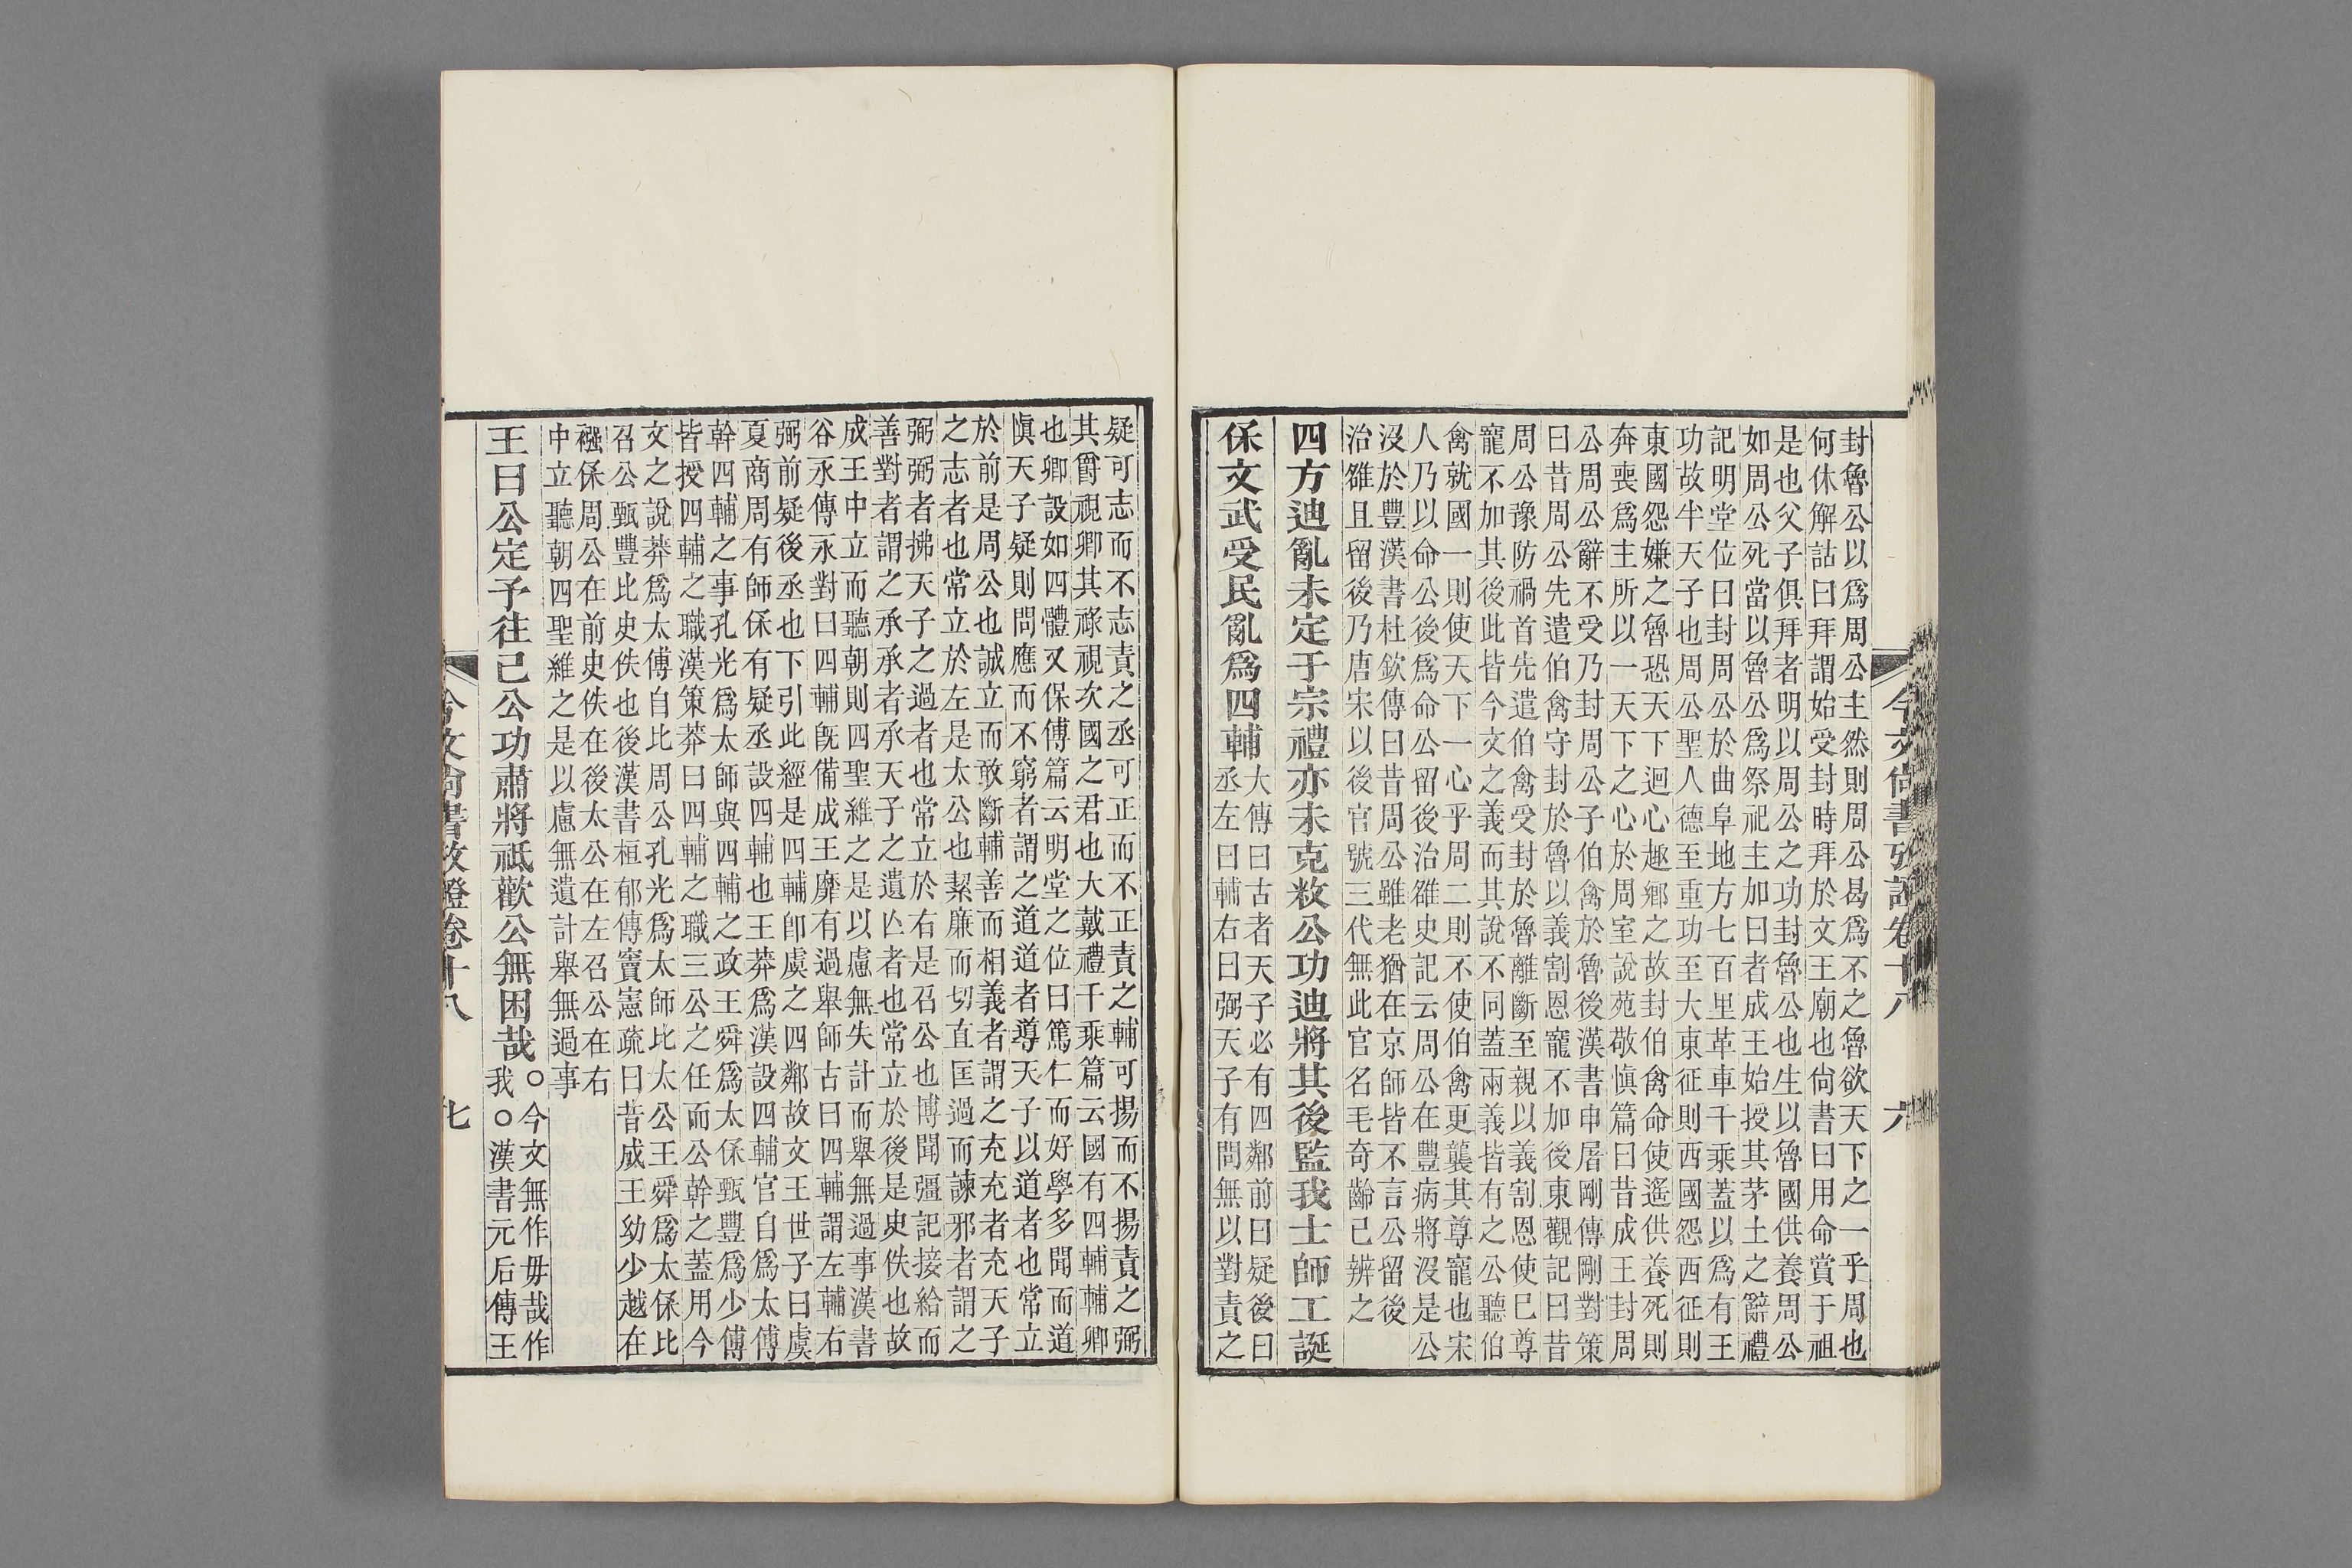 封魯公以爲周公主然則周公曷爲不之魯欲天下之一乎周也
何休解詁曰拜謂始受封時拜於文王廟也尙書曰用命賞于祖
是也父子俱拜者明以周公之功封魯公也生以魯國供養周公
如周公死當以魯公爲祭祀主加曰者成王始授其茅土之辭禮
記明堂位曰封周公於曲阜地方七百里革車千乘蓋以爲有王
功故半天子也周公聖人德至重功至大東征則西國怨西征則
東國怨嫌之魯恐天下迴心趣鄉之故封伯禽命使遙供養死則
奔喪爲主所以一天下之心於周室說苑敬愼篇曰昔成王封周
公周公辭不受乃封周公子伯禽於魯後漢書申屠剛傳剛對策
曰昔周公先遣伯禽守封於魯以義割恩寵不加後東觀記曰昔
周公豫防禍首先遣伯禽受封於魯離斷至親以義割恩使已尊
寵不加其後此皆今文之義而其說不同蓋兩義皆有之公聽伯
禽就國一則使天下一心乎周二則不使伯禽更襲其尊寵也宋
人乃以命公後爲命公留後治雒史記云周公在豐病將沒是公
沒於豐漢書杜欽傳曰昔周公雖老猶在京師皆不言公留後
治雒且留後乃唐宋以後官號三代無此官名毛奇齡已辨之
四方迪亂未定于宗禮亦未克敉公功迪將其後監我士師工誕
保文武受民亂爲四輔
大傳曰古者天子必有四鄰前曰疑後曰
丞左曰輔右曰弼天子有問無以對責之
今文尙書攷證卷十八
六
疑可志而不志責之丞可正而不正責之輔可揚而不揚責之弼
其爵視卿其祿視次國之君也大戴禮千乘篇云國有四輔輔卿
也卿設如四體又保傅篇云明堂之位曰篤仁而好學多聞而道
愼天子疑則問應而不窮者謂之道道者導天子以道者也常立
於前是周公也誠立而敢斷輔善而相義者謂之充充者充天子
之志者也常立於左是太公也絜廉而切直匡過而諫邪者謂之
弼弼者拂天子之過者也常立於右是召公也博聞彊記接給而
善對者謂之承承者承天子之遺亾者也常立於後是史佚也故
成王中立而聽朝則四聖維之是以慮無失計而舉無過事漢書
谷永傳永對曰四輔旣備成王靡有過舉師古曰四輔謂左輔右
弼前疑後丞也下引此經是四輔卽虞之四鄰故文王世子曰虞
夏商周有師保有疑丞設四輔也王莽爲漢設四輔官自爲太傅
幹四輔之事孔光爲太師與四輔之政王舜爲太保甄豐爲少傅
皆授四輔之職漢策莽曰四輔之職三公之任而公幹之蓋用今
文之說莽爲太傅自比周公孔光爲太師比太公王舜爲太保比
召公甄豐比史佚也後漢書桓郁傳竇憲疏曰昔成王幼少越在
襁保周公在前史佚在後太公在左召公在右
中立聽朝四聖維之是以慮無遺計舉無過事
王曰公定予往已公功肅將祗歡公無困哉
○今文無作毋哉作
我○漢書元后傳王
今文尙書攷證卷十八
七